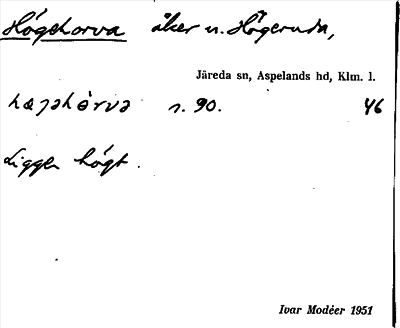 Högehorva åker u. Högeruda,
Järeda sn, Aspelands hd, Klm. l.
s. 90. 46
Ligger högt.
Ivar Modéer 1951